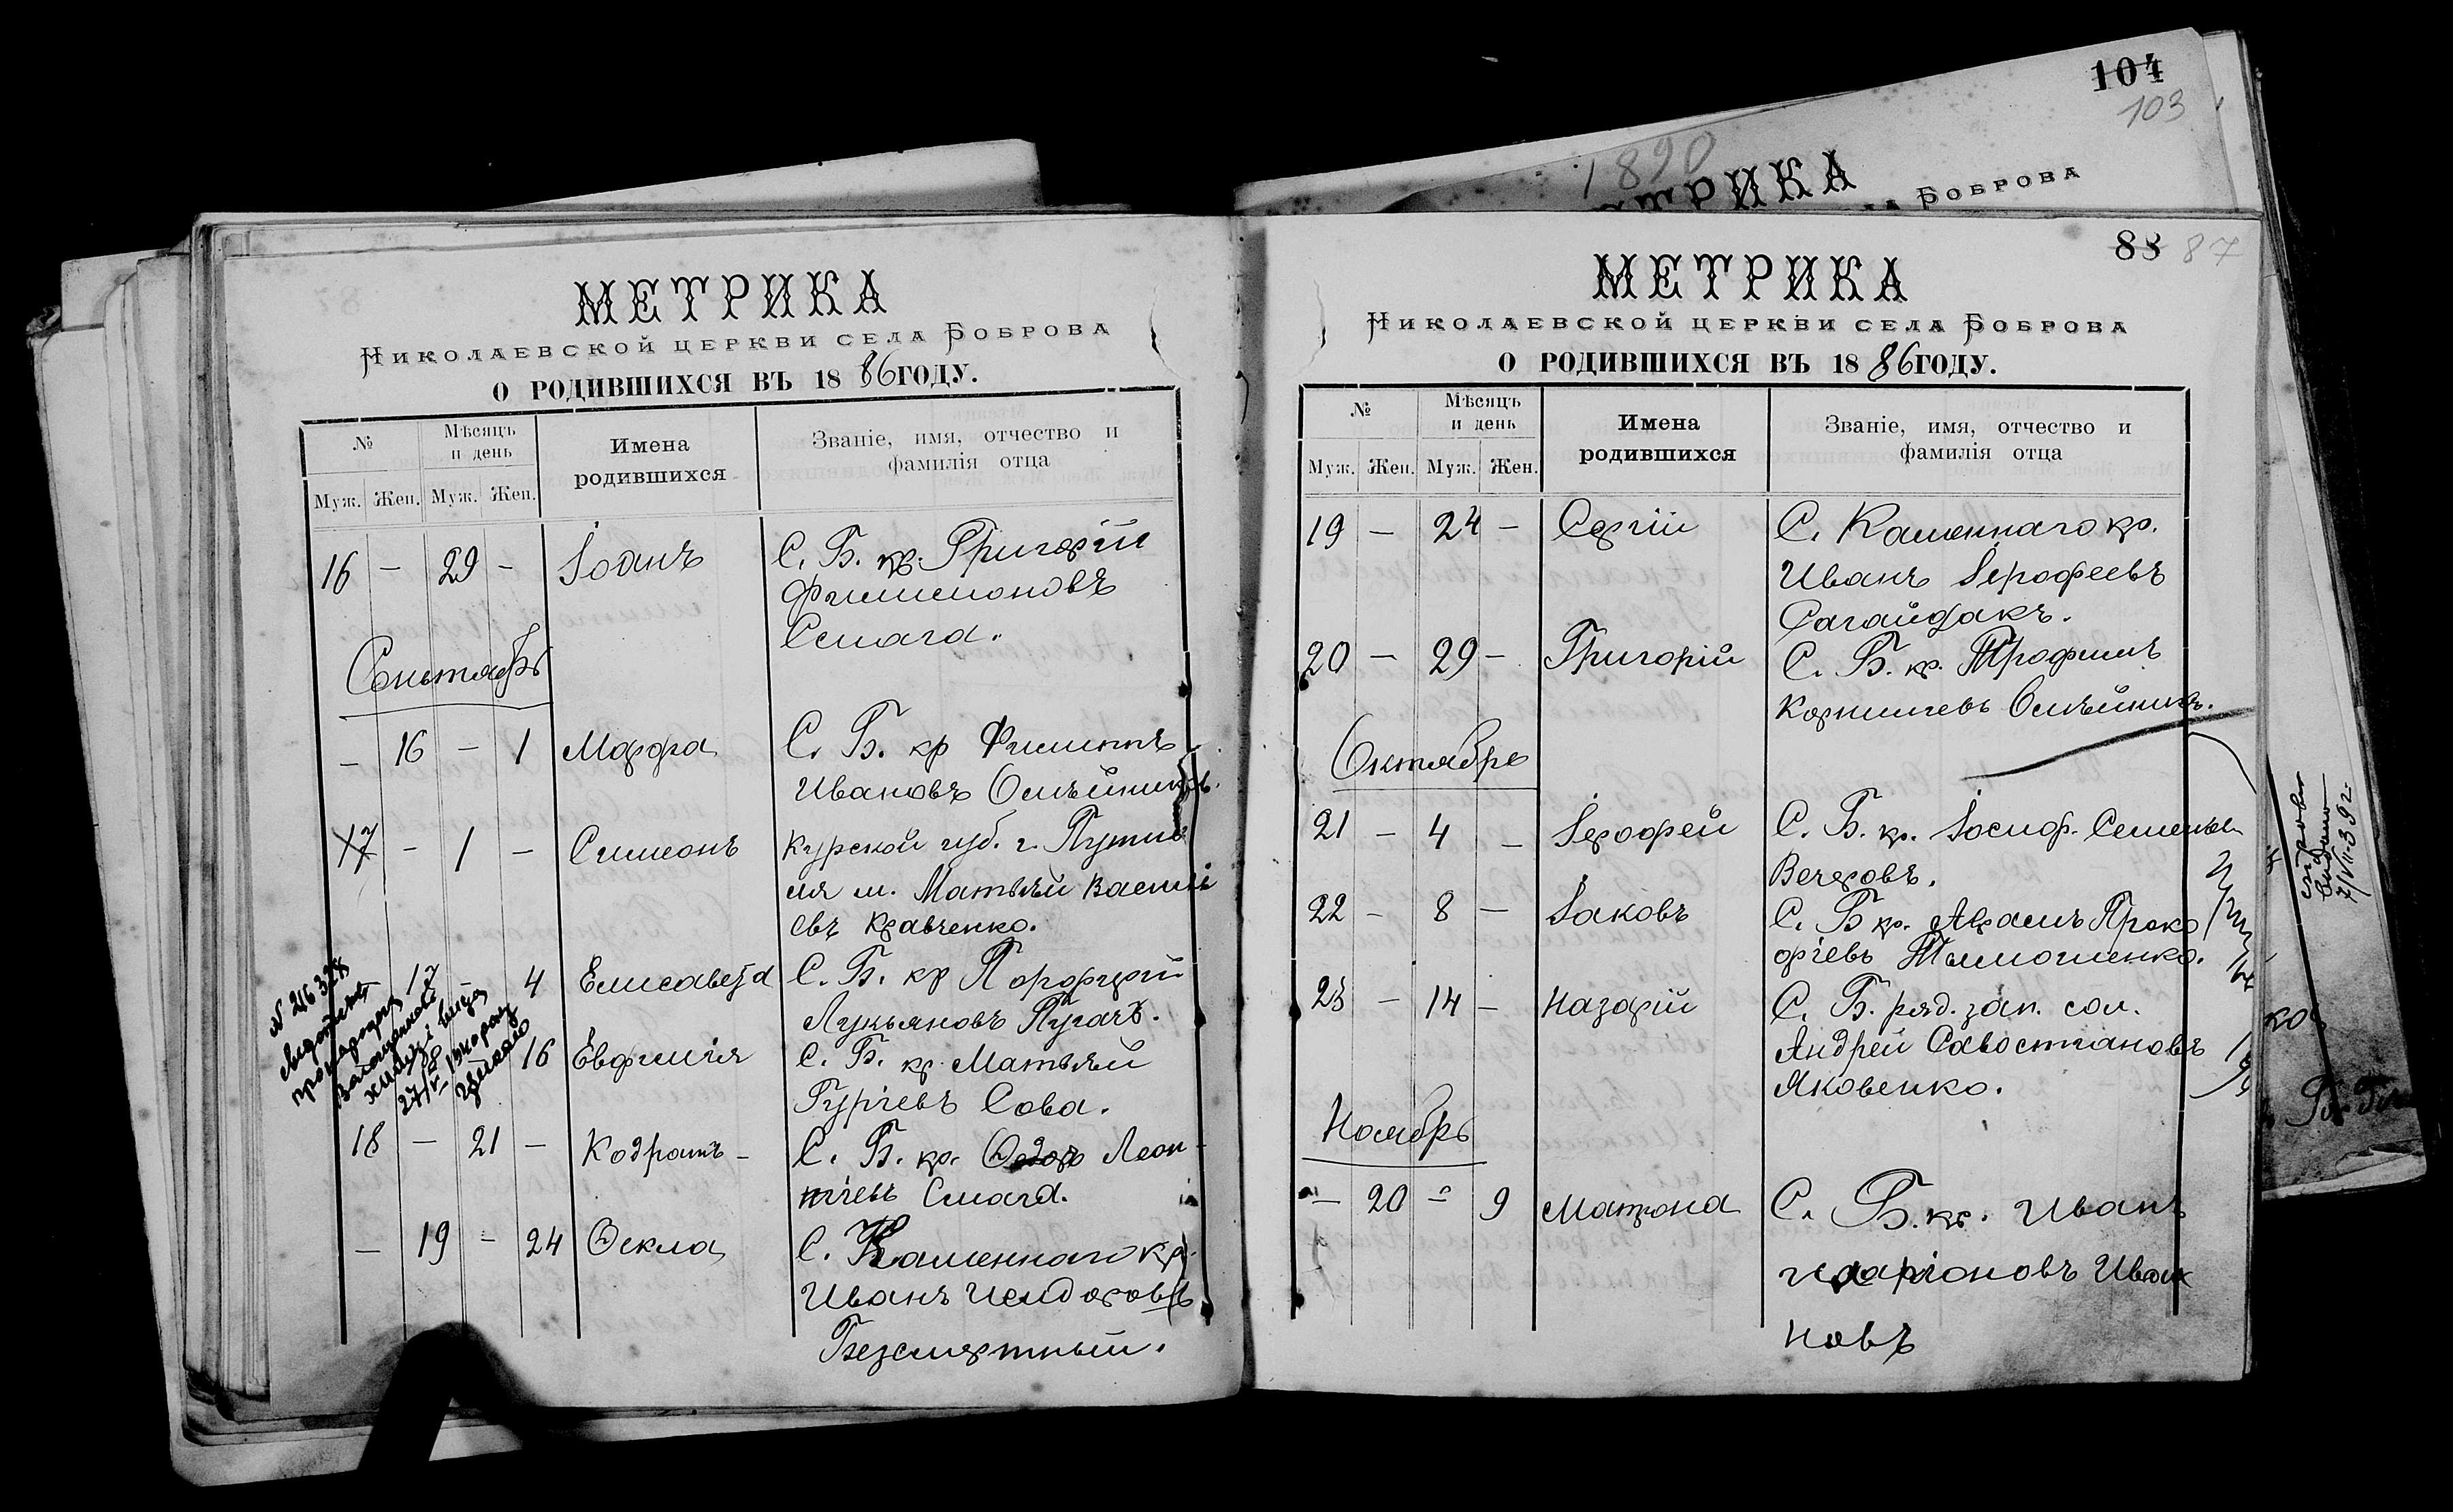 104
103
1890
МЕТРИКА
БОБРОВА
МЕТРИКА
НИКОЛАЕВСКОЙ ЦЕРКВИ СЕЛА БОБРОВА
О РОДИВШИХСЯ ВЪ 1886 ГОДУ.
№
Мѣсяцъ и день
Имена родившихся
Званіе, имя, отчество и фамилія отца
Муж. Жен. Муж. Жен.
16 — 29 — Іоанъ С. Б. кр. Григорій
Филимоновъ
Смага.
Сентябрь
— 16 — 1 Марфа С. Б. кр Филиппъ
Ивановъ Олѣйникъ.
17 — 1 — Симеонъ Курской губ. г. Путив
ля м. Матвѣй Васильі
евъ Кравченко.
17 — 4 Елисавета С. Б. кр Порфирій
Лукьяновъ Пугачъ.
16 Евфимія С. Б. кр. Матвѣй
Гуріевъ Сова.
18 — 21 — Кодратъ — С. Б. кр. Ѳедоръ Леон-
тіевъ Смага.
— 19 — 24 Ѳекла С. Каменнаго кр.
Иванъ Исидоровъ
Безсмертный.
N 216328
88 87
МЕТРИКА
НИКОЛАЕВСКОЙ ЦЕРКВИ СЕЛА БОБРОВА
О РОДИВШИХСЯ ВЪ 1886 ГОДУ.
№
Мѣсяцъ и день
Имена родившихся
Званіе, имя, отчество и фамилія отца
Муж. Жен. Муж. Жен.
19 — 24 — Сергій С. Каменнаго кр.
Иванъ Іерофеевъ
Сагайдакъ.
20 — 29 — Григорій С. Б. кр. Трофимъ
Корнилієвъ Олѣйникъ.
Октябрь
21 — 4 — Іерофей С. Б. кр. Іосиф. Семеновъ
Вечеровъ.
22 — 8 — Іаковъ С. Б кр. Абрамъ Проко
фіевъ Тымошенко.
23 — 14 — Назарій С. Б. ряд. зап. сол.
Андрей Савостіановъ
Яковенко.
Ноябрь
— 20 — 9 Матрона С. Б. кр. Иванъ
Иларіоновъ Ива
новъ